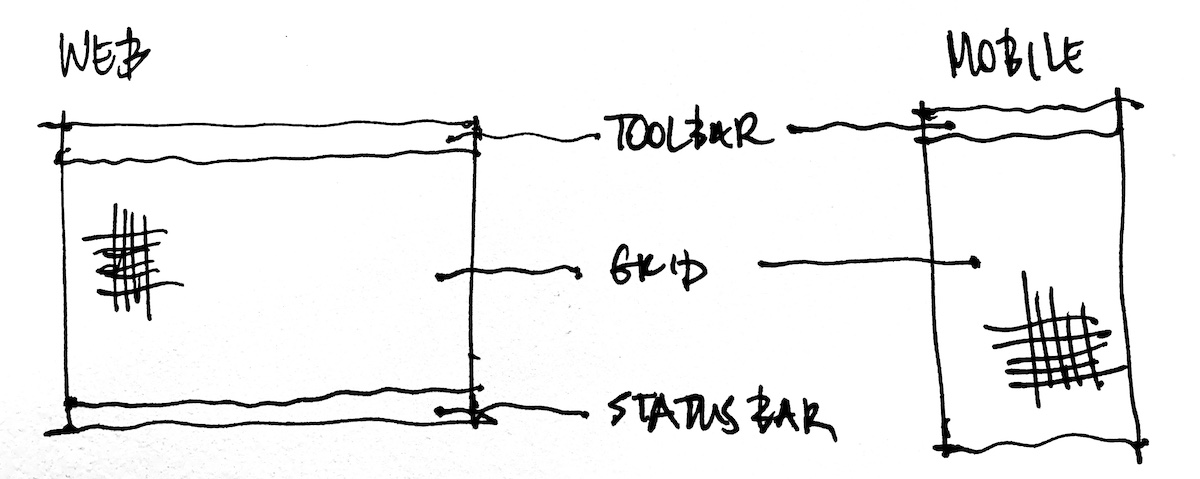 WEB
MOBILE
TOOLBAR
GRID
STATUS BAR